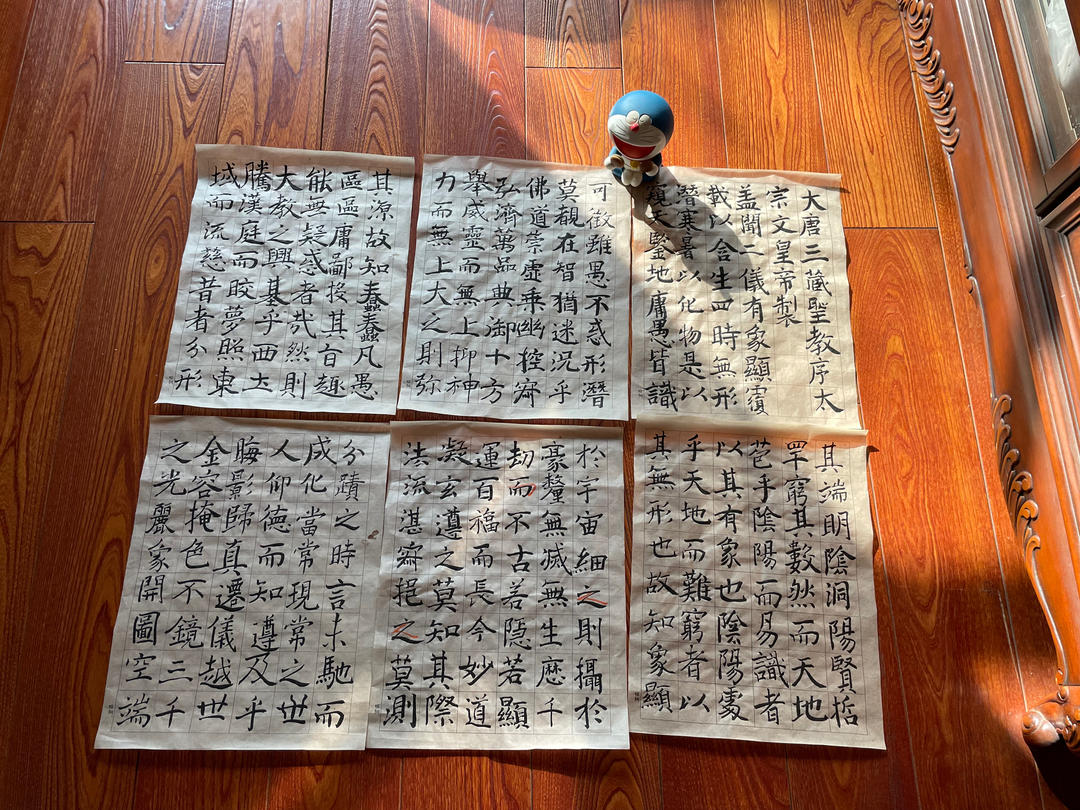 大唐三藏聖教序太
宗文皇帝製
盖聞二儀有象顯覆
載以含生四時無形
潛寒暑以化物是以
窺天鑒地庸愚皆識
其端明陰洞陽賢哲
罕窮其數然而天地
苞乎陰陽而易識者
以其有象也陰陽處
乎天地而難窮者以
其無形也故知象顯
可徵雖愚不惑形潛
莫覩在智猶迷況乎
佛道崇虛乘幽控寂
弘濟萬品典御十方
舉威靈而無上抑神
力而無上大之則弥
於宇宙細之則攝於
豪釐無滅無生歷千
劫而不古若隱若顯
運百福而長今妙道
凝玄遵之莫知其際
法流湛寂挹之莫測
其源故知蠢蠢凡愚
區區庸鄙投其旨趣
能無疑惑者哉然則
大教之興基乎西土
騰漢庭而皎夢照東
域而流慈昔者分形
分蹟之時言未馳而
成化當常現常之世
人仰德而知遵及乎
晦影歸真遷儀越世
金容掩色不鏡三千
之光麗象開圖空端